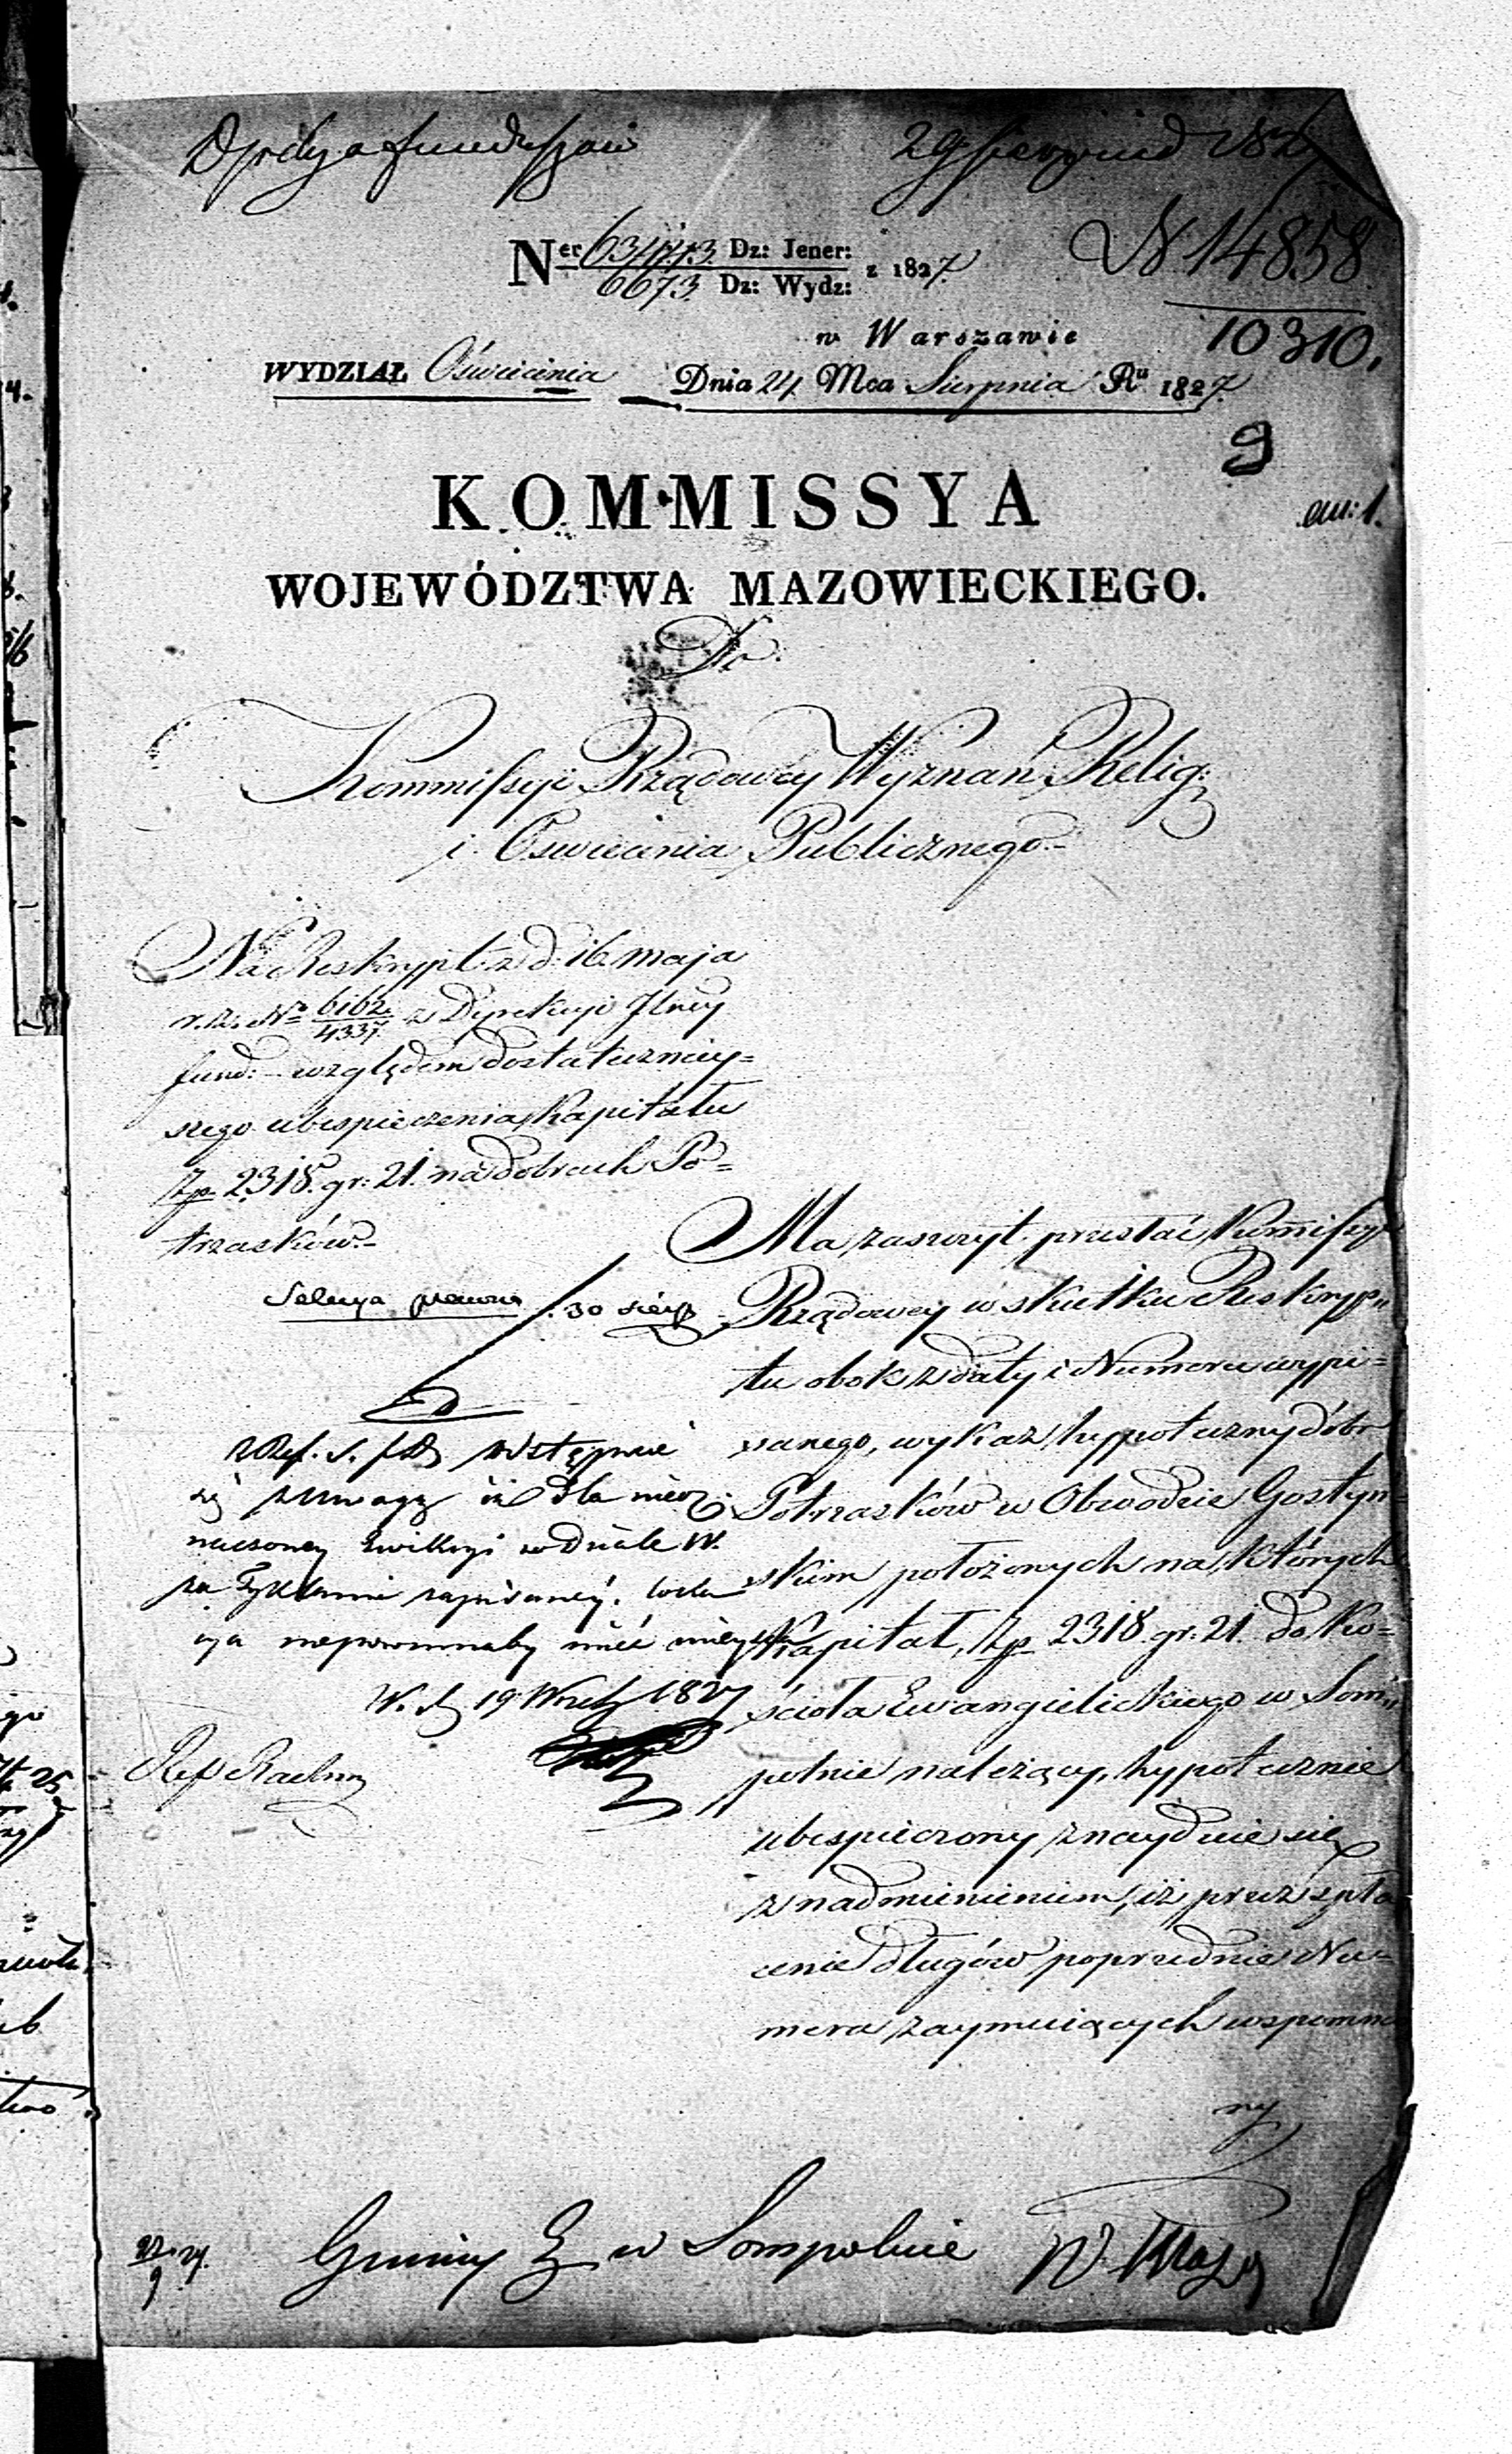 29 1827
N 14858
10310.
Ner 63443 Dz: Jener:
6673 Dz: Wydz: z 1827
w Warszawie
WYDZIAŁ Oświecenia Dnia 24 Mca Sierpnia Ru 1827
9
KOMMISSYA
WOJEWÓDZTWA MAZOWIECKIEGO.
Do
Kommissyi Rządowey Wyznań Relig:
i Oswiecenia Publicznego
Na Reskrypt z d. 16 maja
r. b. No 6162/4337 z Dyrekcyi Jlney
fund: względem dostateczniey=
szego ubespieczenia Kapitału
Zp. 2318. gr: 21. na dobrach Po=
trzasków.
Ma zaszczyt przesłać Kommissyi
Rządowey w skutku Reskryp=
tu obok z daty i Numeru wypi=
sanego, wykaz hypoteczny dóbr
Potrzasków w Obwodzie Gostyn=
skim położonych na których
Kapitał, Zp. 2318. gr: 21. do Ko=
ścioła Ewangielickiego w Som=
polnie należący, hypotecznie
ubespieczony znayduie się
z nadmienieniem, iż przez spła=
cenie długów poprzednie Nu=
mera zaymuiących wspomnio
ny
Sekcya prawna 30 sierp
wstępnie
się z uwagą iż dla nieoz=
naczoney w Dziale IV.
za
niepowinnaby mieć mieysca
W. d 19 Wrześ 1827
Gminy E w Sompolnie W. Mazo